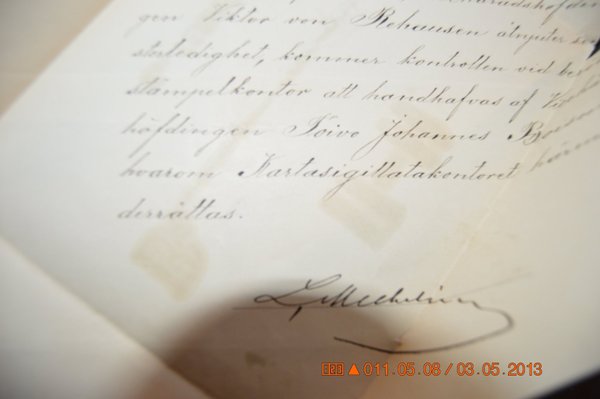 gen Viktor von Rehausen åtnjuter
storledighet, kommer kontrollen vid
stämpelkontor att handhafvas af
höfdingen Toivo Johannes
hvarom Kartasigillatakontoret
derrättas.
L. Mechelin
011.05.08 / 03.05.2013